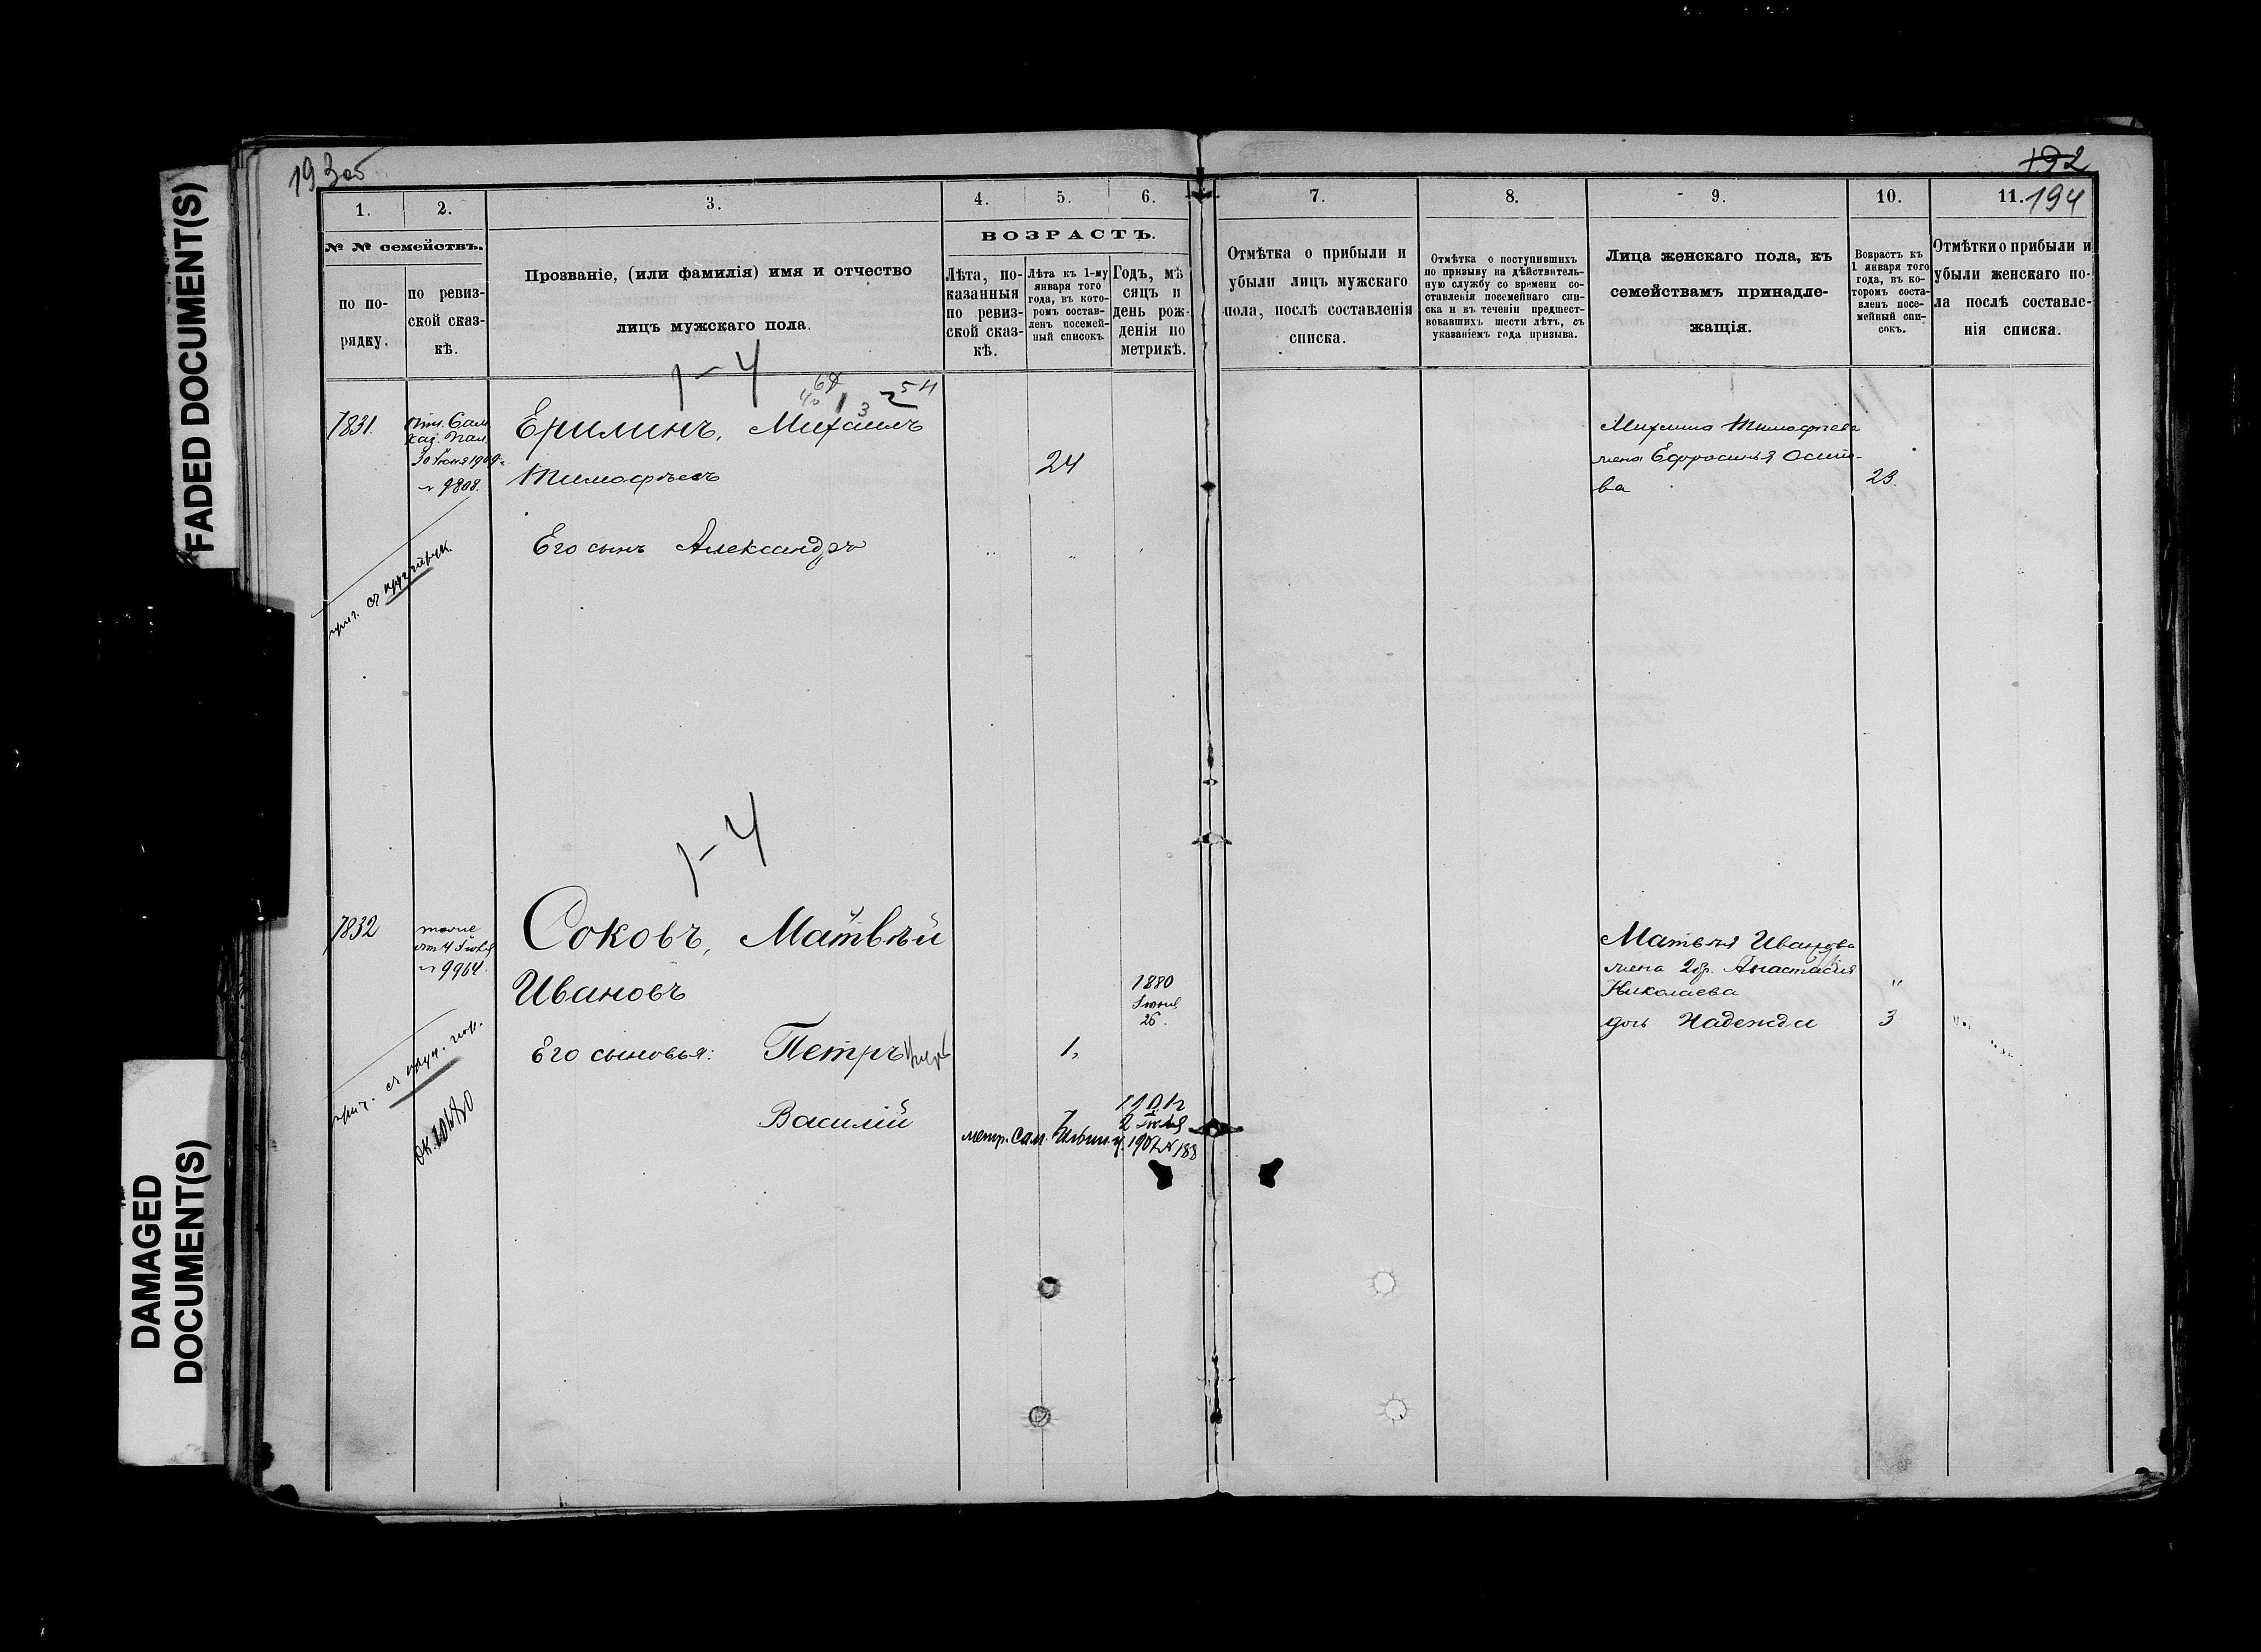 FADED DOCUMENT(S)
DAMAGED
DOCUMENT(S)
193 об
192
194
1.
2.
3.
4.
5.
6.
7.
8.
9.
10.
11.
№ № семействъ.
по по-
рядку.
по ревиз-
ской сказ-
кѣ.
Прозваніе, (или фамилія) имя и отчество
лицъ мужскаго пола.
ВОЗРАСТЪ.
Лѣта, по-
казанныя
по ревиз-
ской сказ-
кѣ.
Лѣта къ 1-му
января того
года, въ кото-
ромъ состав-
ленъ посемей-
ный списокъ.
Годъ, мѣ
сяцъ и
день рож-
денія по
метрикѣ.
Отмѣтка о прибыли и
убыли лицъ мужскаго
пола, послѣ составленія
списка.
Отмѣтка о поступившихъ
по призыву на дѣйствитель-
ную службу со времени со-
ставленія посемейнаго спи-
ска и въ теченіи предшест-
вовавшихъ шести лѣтъ, съ
указаніемъ года призыва.
Лица женскаго пола, къ
семействамъ принадле-
жащія.
Возрастъ къ
1 января того
года, въ ко-
торомъ соста-
вленъ посе-
мейный спи-
сокъ.
Отмѣтки о прибыли и
убыли женскаго по-
ла послѣ составле-
нія списка.
1-4
7831.
Каз. Пал.
№ 9808.
Ерилинъ, Михаилъ
Тимофѣевъ
24
Его сынъ Александръ
Михаила Тимофѣева
жена Ефросинья Осипо-
ва
23.
1-4
7832
тоже
№ 9964.
Соковъ, Матвѣй
Ивановъ
1880
26.
Его сыновья: Петръ
1,
Василій
метр. Сам.
Матвѣя Иванова
жена 2 бр. Анастасія
Николаева
"
дочь Надежда
3